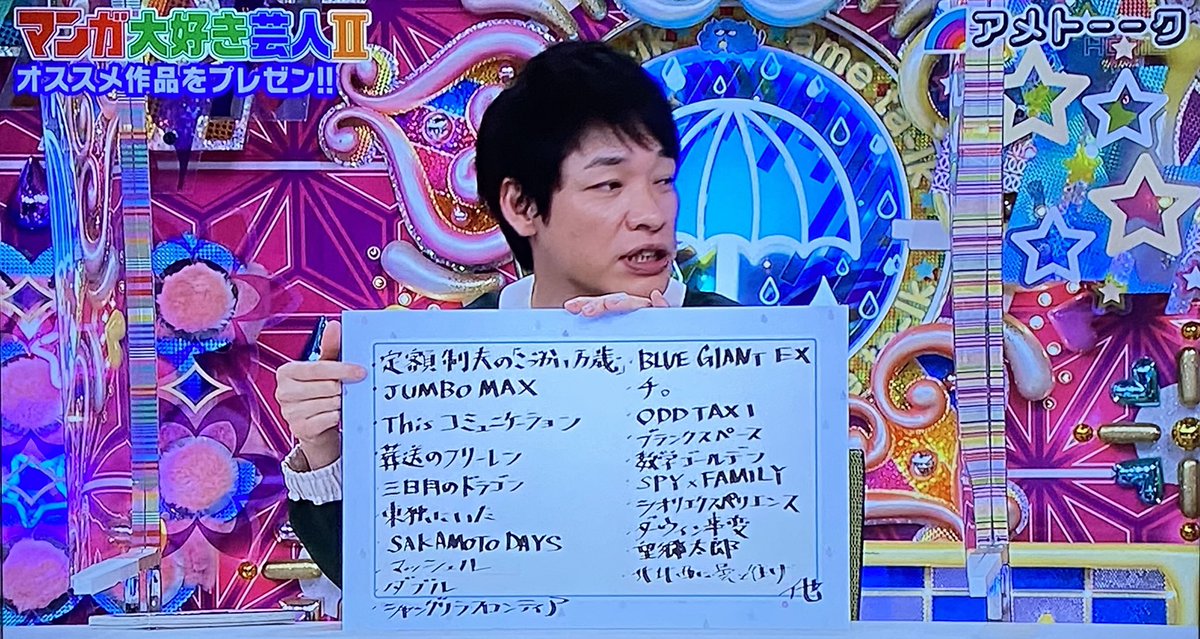 マンガ大好き芸人II
オススメ作品をプレゼン!!
アメトーーク
・定額制夫の「こづかい万歳」
・JUMBO MAX
・Thisコミュニケーション
・葬送のフリーレン
・三日月のドラゴン
・東独にいた
・SAKAMOTO DAYS
・マッシュル
・ダブル
・シャングリラフロンティア
・BLUE GIANT EX
・チ。
・ODD TAXI
・ブランクスペース
・数学ゴールデン
・SPY×FAMILY
・シオリエクスペリエンス
・ダーウィン事変
・望郷太郎
他